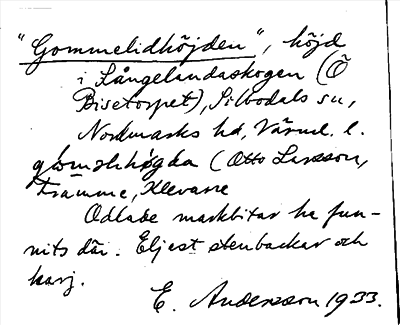 "Gommelidhöjden", höjd
i Långelandaskogen (Ö
Bisetorpet), Silbodals sn,
Nordmarks hd, Värml. l.
(Otto Larsson,
Främme, Klevane
Odlade markbitar ha fun-
nits där. Eljest stenbackar och
E. Andersson 1933.